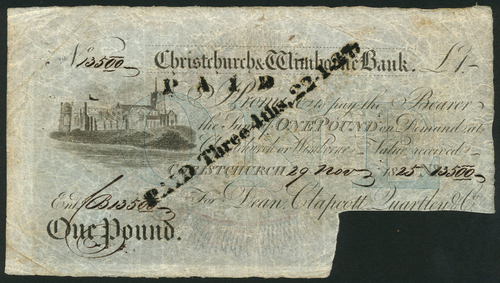 No. 13500 Christchurch & Wimborne Bank. £1-
PAID
I Promise to pay the Bearer
the Sum of ONE POUND on Demand at
Christchurch or Wimborne Value received
PAID Three Adks. 22.1.27.
CHRISTCHURCH 29 Nov 1825 No 13500
Entd B13500 For Dean, Clapcott, Quartley & Co.
One Pound.